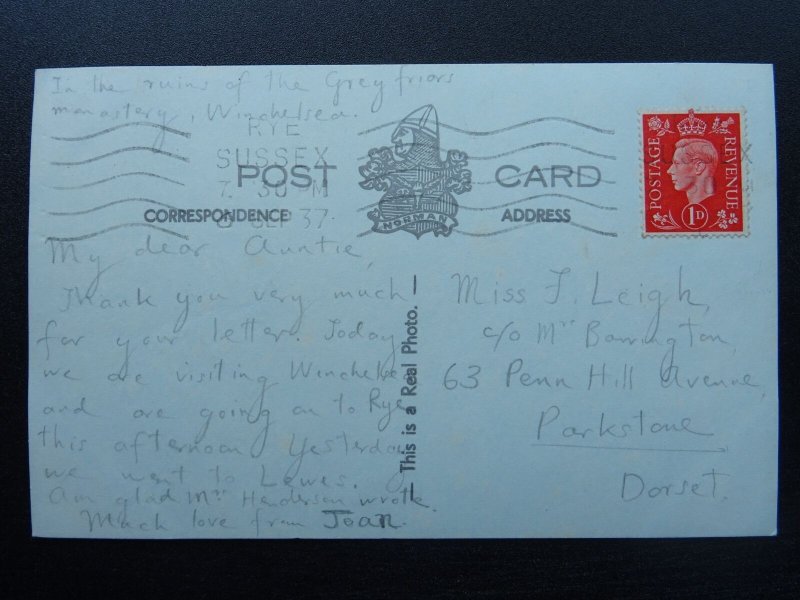 In the ruins of the Grey friars
monastery, Winchelsea.
RYE
SUSSEX
7. 30 PM
SEP 37
POST CARD
CORRESPONDENCE
ADDRESS
NORMAN
POSTAGE
REVENUE
1D
My dear Auntie,
Thank you very much
for your letter. Today
we are visiting Winchelsea
and are going on to Rye
this afternoon. Yesterday
we went to Lewes.
Am glad Mrs Henderson wrote.
Much love from Joan.
This is a Real Photo.
Miss J. Leigh,
c/o Mrs Barrington,
63 Penn Hill Avenue,
Parkstone
Dorset.